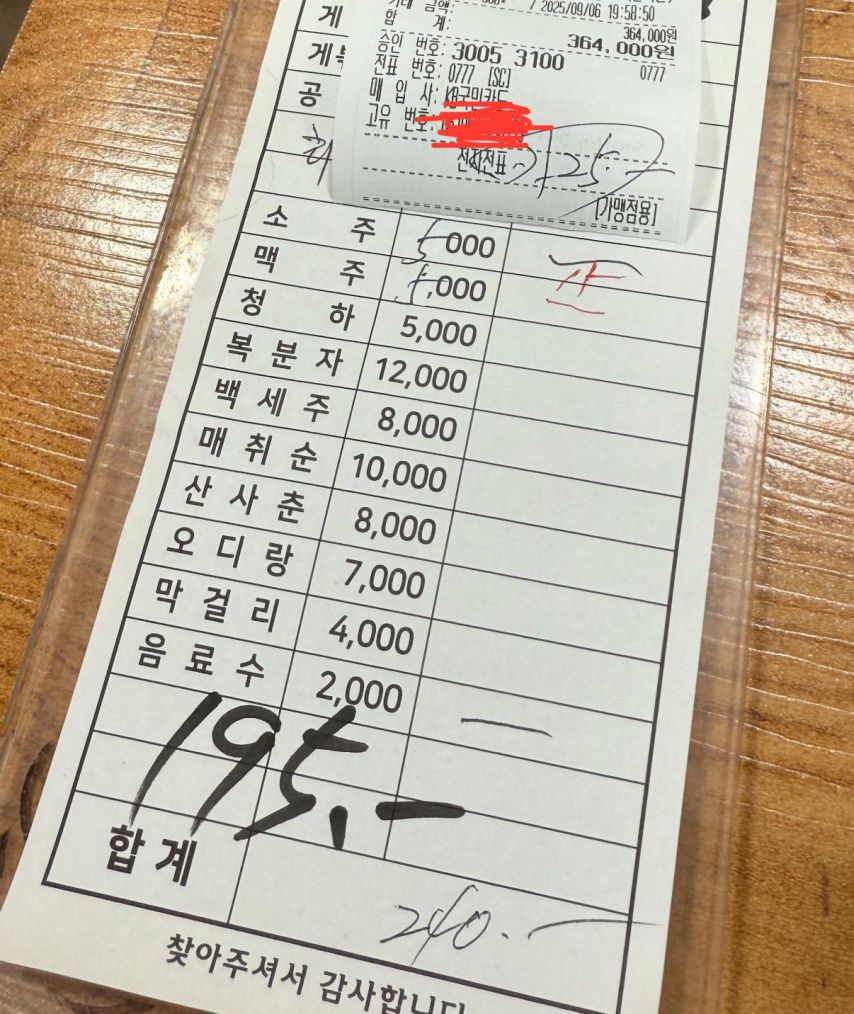 / 2025/09/06 19:58:50
거래 금액: 364,000원
합 계: 364,000원
승인 번호: 3005 3100 0777
전표 번호: 0777 [SC]
매 입 사: KB국민카드
고유 번호:
전자전표
[가맹점용]
게
게
공
소 주 5000
맥 주 5,000
청 하 5,000
복 분 자 12,000
백 세 주 8,000
매 취 순 10,000
산 사 춘 8,000
오 디 랑 7,000
막 걸 리 4,000
음 료 수 2,000 一
195.-
합 계 240.-
찾아주셔서 감사합니다